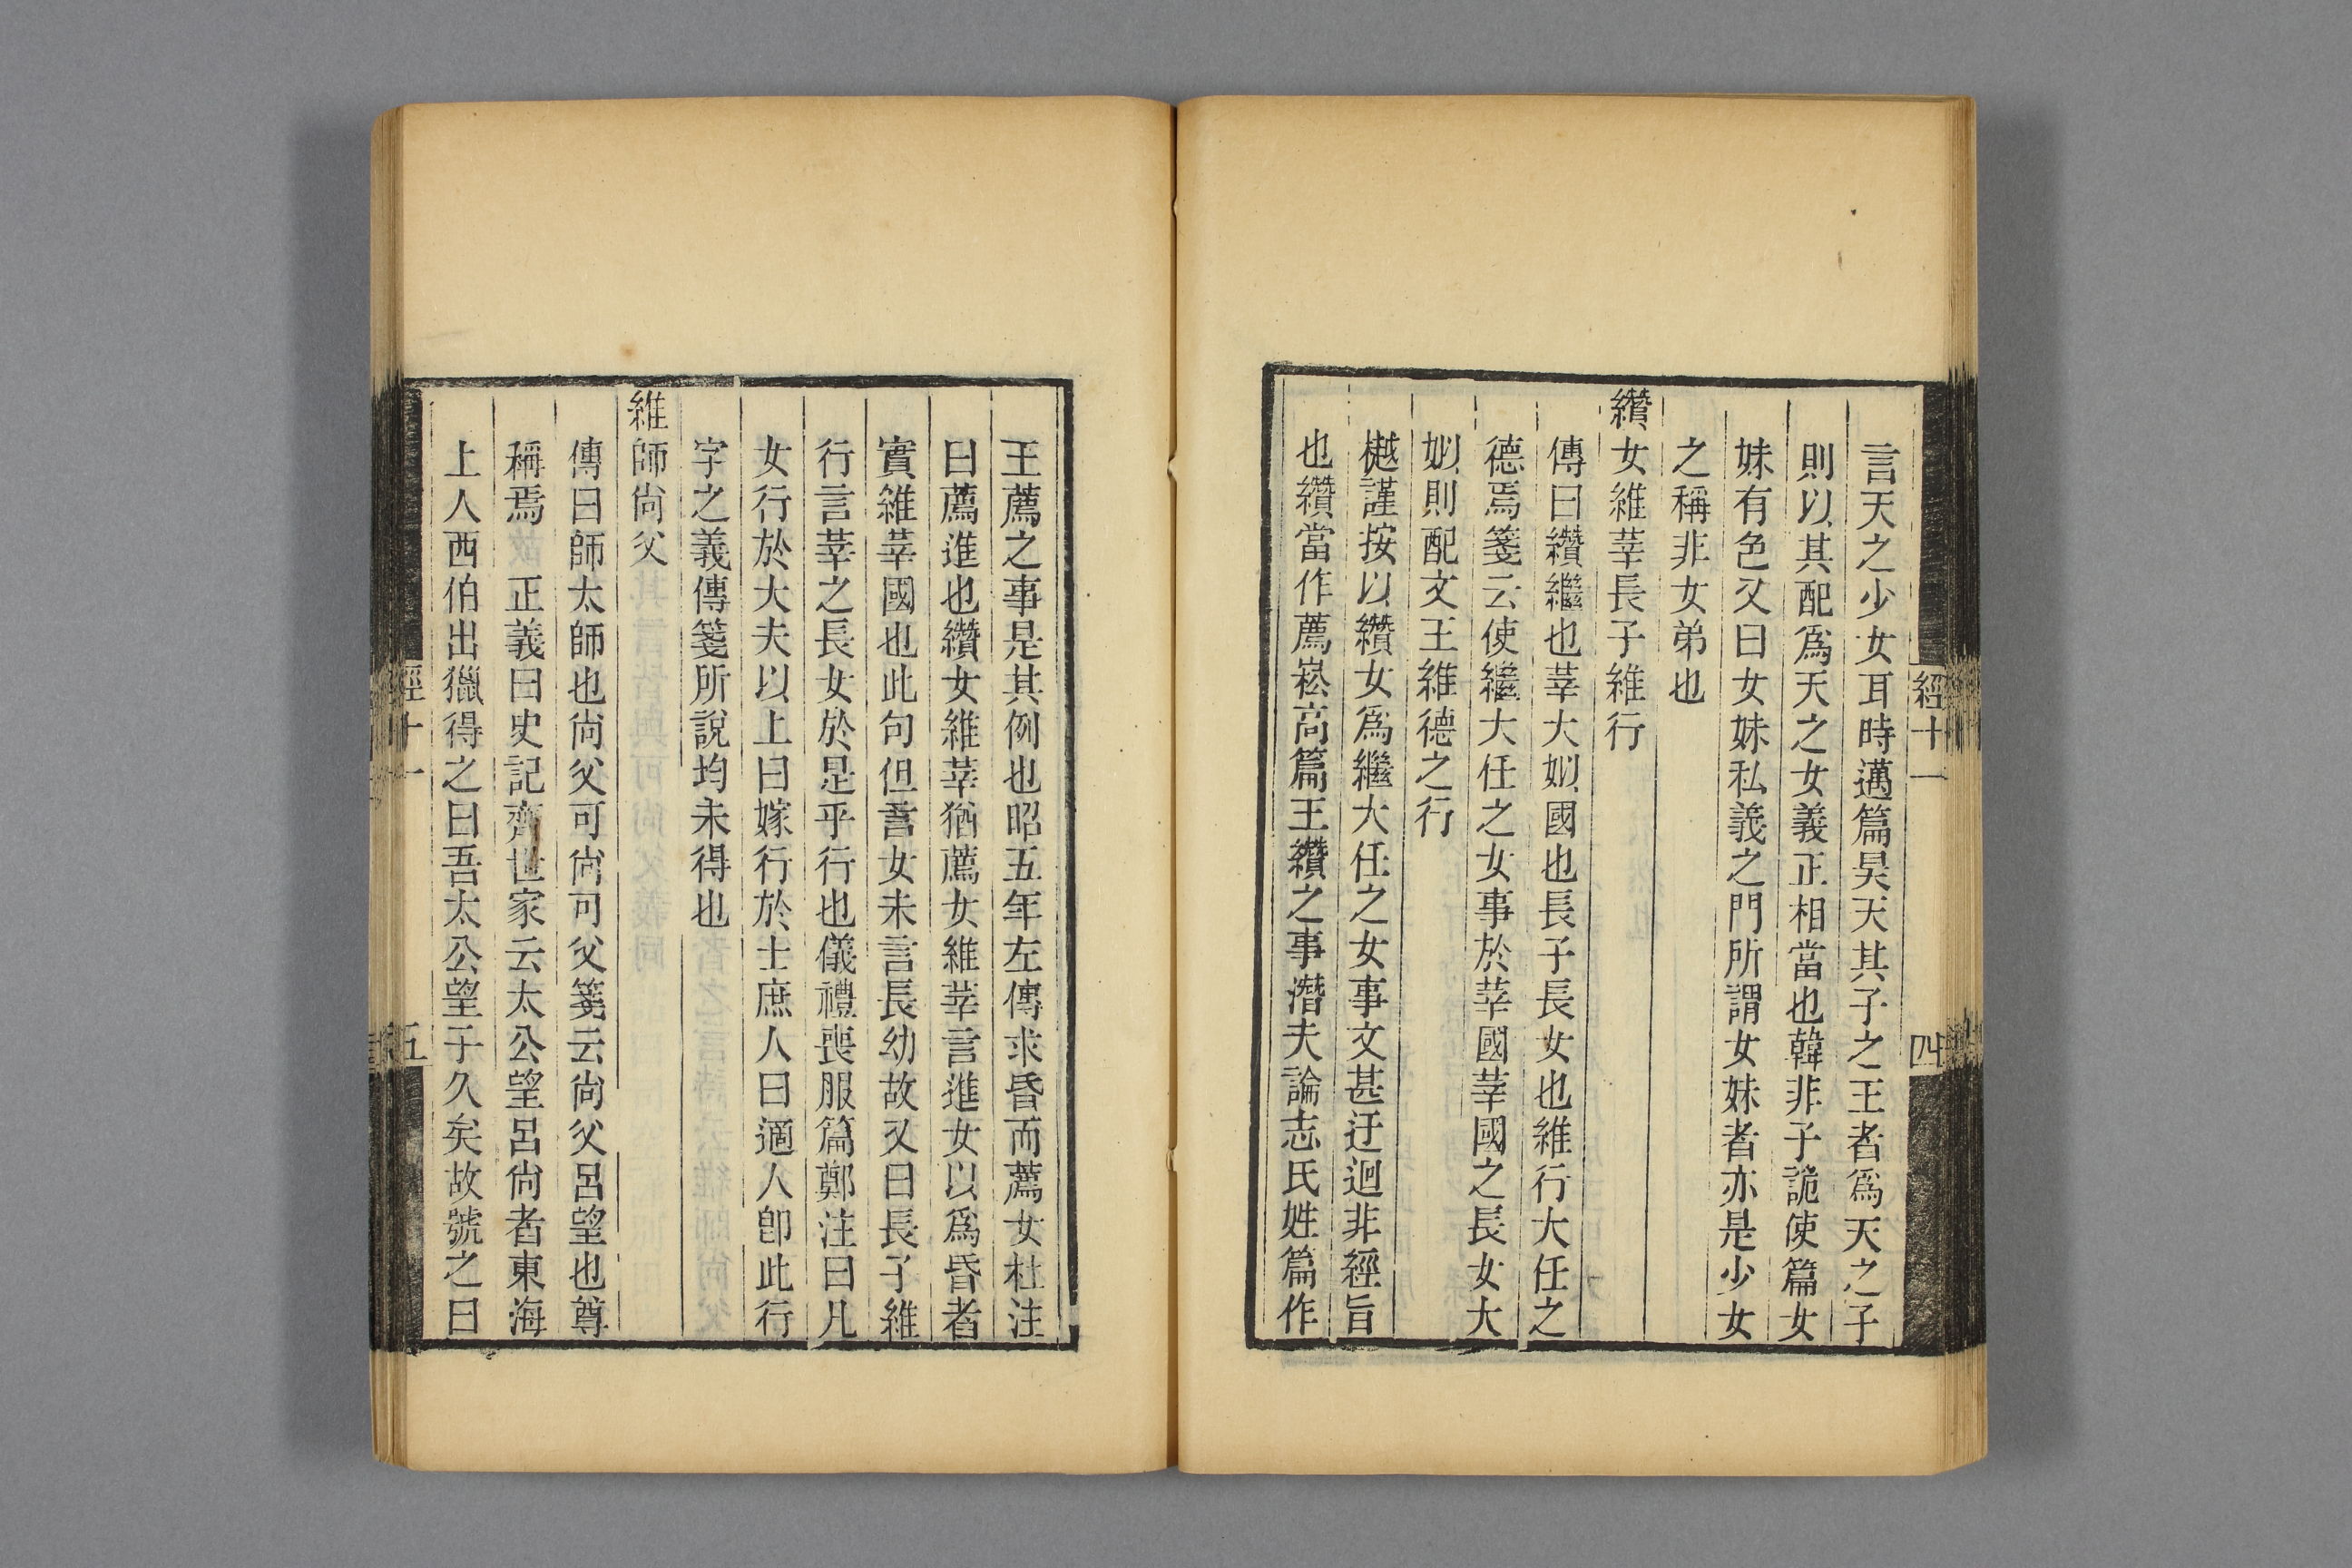 言天之少女耳時邁篇昊天其子之王者爲天之子
則以其配爲天之女義正相當也韓非子詭使篇女
妹有色又曰女妹私義之門所謂女妹者亦是少女
之稱非女弟也
纘女維莘長子維行
傳曰纘繼也莘大姒國也長子長女也維行大任之
德焉箋云使繼大任之女事於莘國莘國之長女大
姒則配文王維德之行
樾謹按以纘女爲繼大任之女事文甚迂迴非經旨
也纘當作薦崧高篇王纘之事潛夫論志氏姓篇作
經十一
四
王薦之事是其例也昭五年左傳求昏而薦女杜注
曰薦進也纘女維莘猶薦女維莘言進女以爲昏者
實維莘國也此句但言女未言長幼故又曰長子維
行言莘之長女於是乎行也儀禮喪服篇鄭注曰凡
女行於大夫以上曰嫁行於士庶人曰適人卽此行
字之義傳箋所說均未得也
維師尙父
傳曰師太師也尙父可尙可父箋云尙父呂望也尊
稱焉 正義曰史記齊世家云太公望呂尙者東海
上人西伯出獵得之曰吾太公望子久矣故號之曰
經十一
五